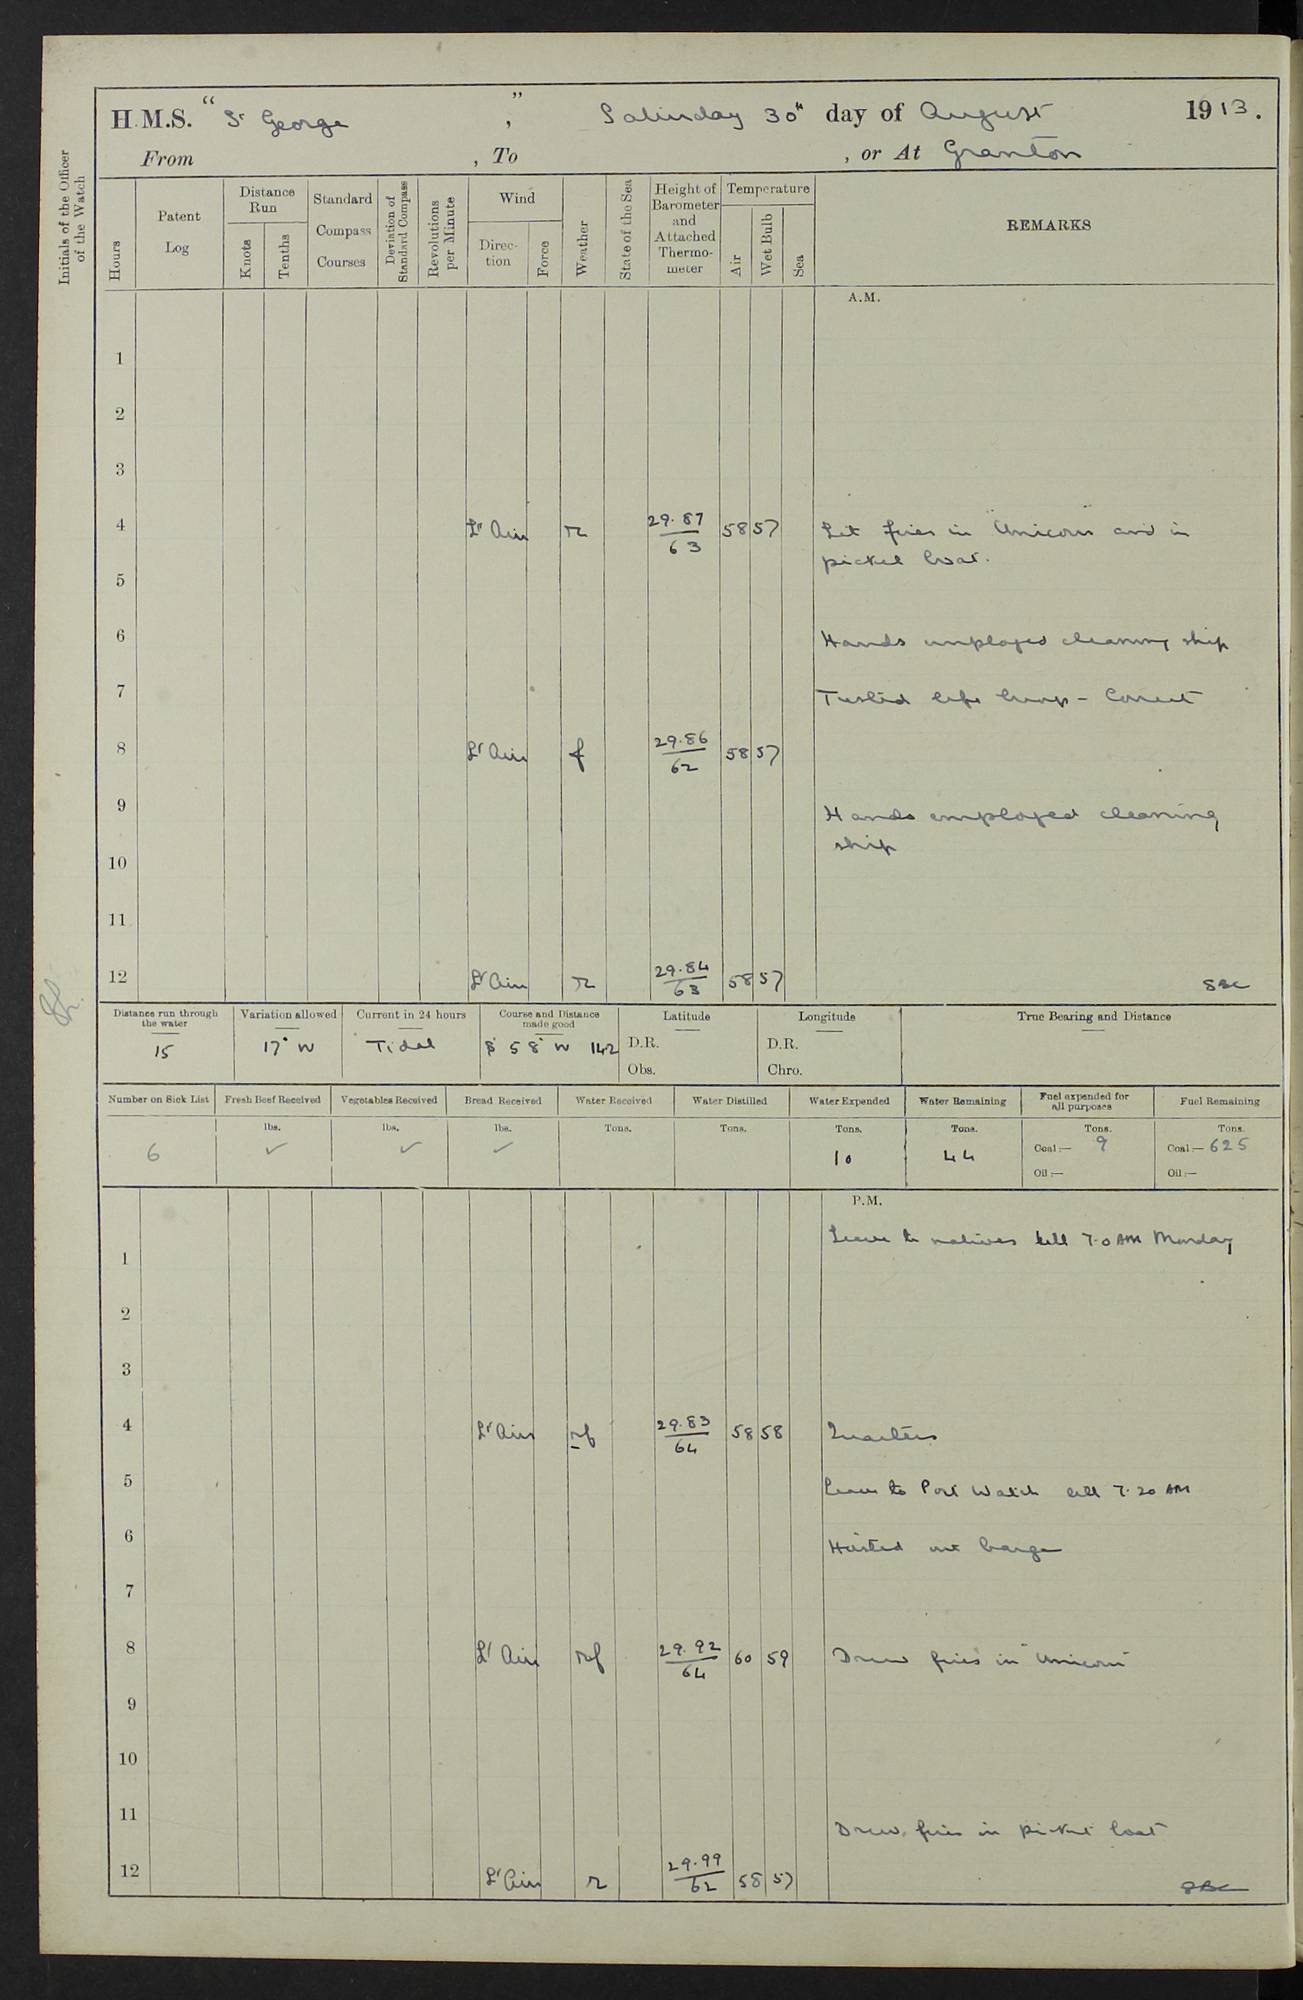 H.M.S. "St George", Saturday 30th day of August 1913.
From , To , or At Granton
Initials of the Officer of the Watch
Hours
Patent Log
Distance Run
Knots
Tenths
Standard Compass Courses
Deviation of Standard Compass
Revolutions per Minute
Wind
Direction
Force
Weather
State of the Sea
Height of Barometer and Attached Thermometer
Temperature
Air
Wet Bulb
Sea
REMARKS
A.M.
1
2
3
4 Lt Airs r 29.87 58 57 Lit fires in "Unicorn" and in
63 picket boat.
5
6 Hands employed cleaning ship
7 Tested life buoys - Correct
8 Lt Airs f 29.86 58 57
62
9 Hands employed cleaning
ship
10
11
12 Lt Airs r 29.84 58 57
63
Distance run through the water
15
Variation allowed
17° W
Current in 24 hours
Tidal
Course and Distance made good
S 58° W 142
Latitude
D.R.
Obs.
Longitude
D.R.
Chro.
True Bearing and Distance
Number on Sick List
6
Fresh Beef Received
lbs.
✓
Vegetables Received
lbs.
✓
Bread Received
lbs.
✓
Water Received
Tons.
Water Distilled
Tons.
Water Expended
Tons.
10
Water Remaining
Tons.
44
Fuel expended for all purposes
Tons.
Coal:— 9
Oil:—
Fuel Remaining
Tons.
Coal:— 625
Oil:—
P.M.
Leave to natives till 7.0 AM Monday
1
2
3
4 Lt Airs rf 29.83 58 58 Quarters
64
5 Leave to Port Watch till 7.20 AM
6 Hoisted out barge
7
8 Lt Airs rf 29.92 60 59 Drew fires in "Unicorn"
64
9
10
11 Drew fires in picket boat
12 Lt Airs r 29.99 58 57
62